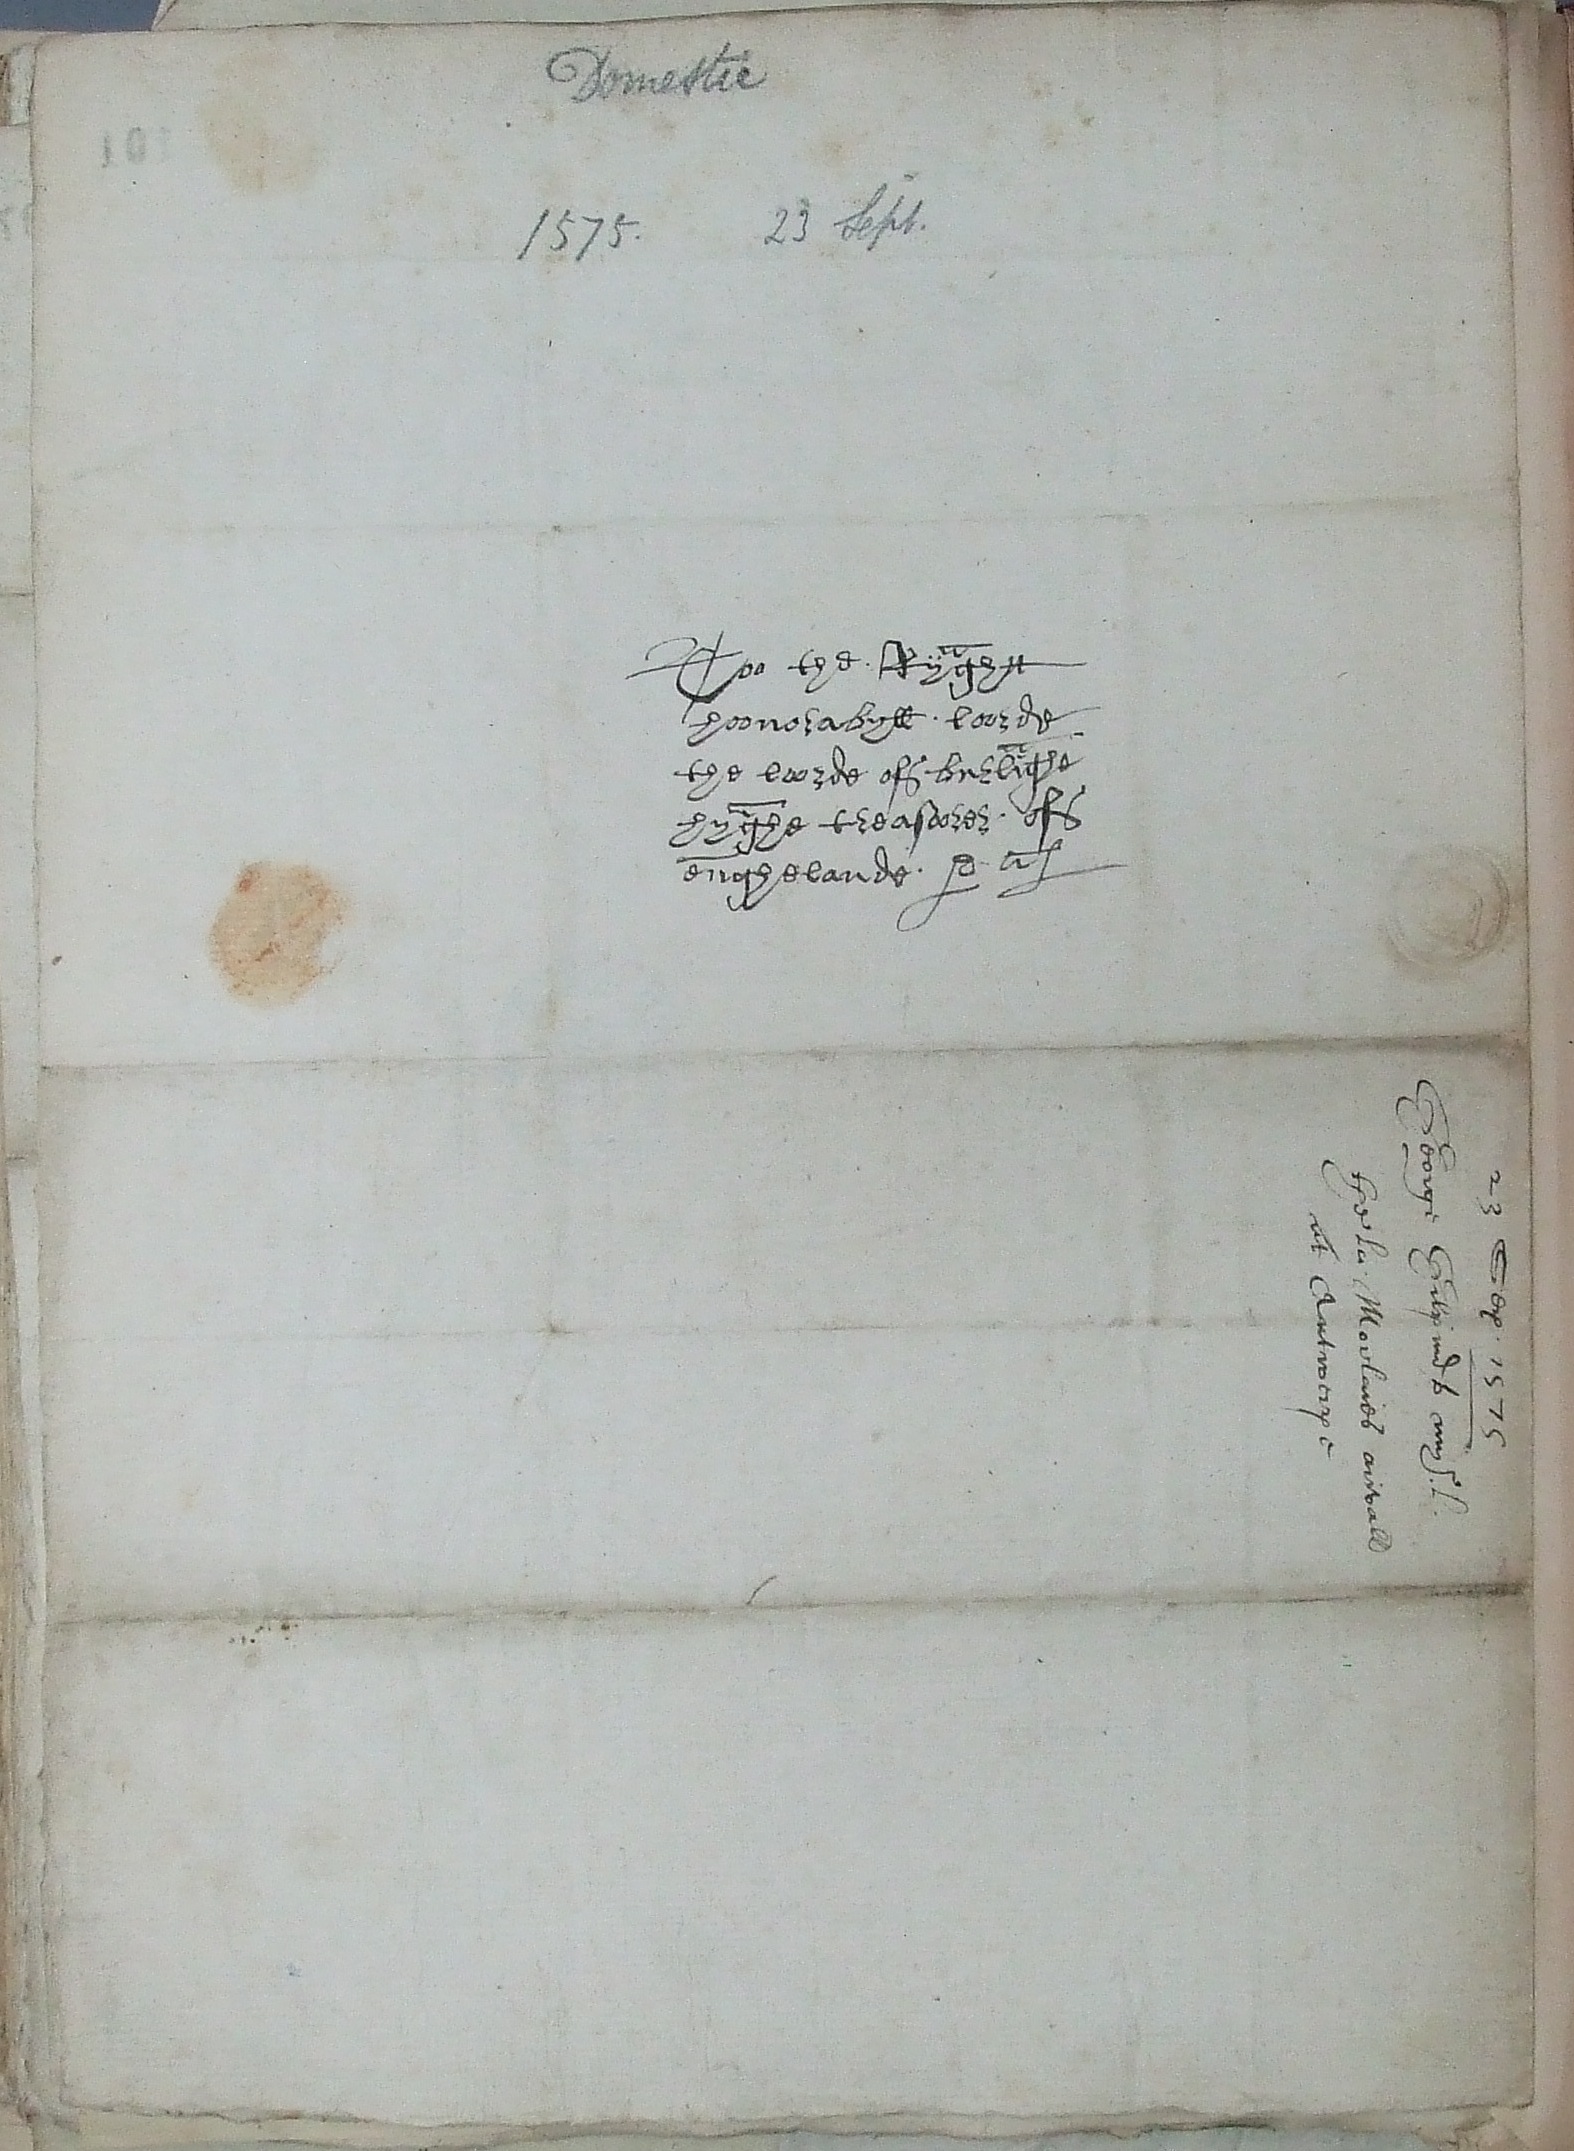 Domestic
1575. 23 Sept.
Too the Ryght
hoonorabyll loorde
the loorde off burlighe
hyghe treasorer off
enghelande
23 Sep. 1575
George Gylpin to my L.
The La. Morleis arivall
at Antwerpe